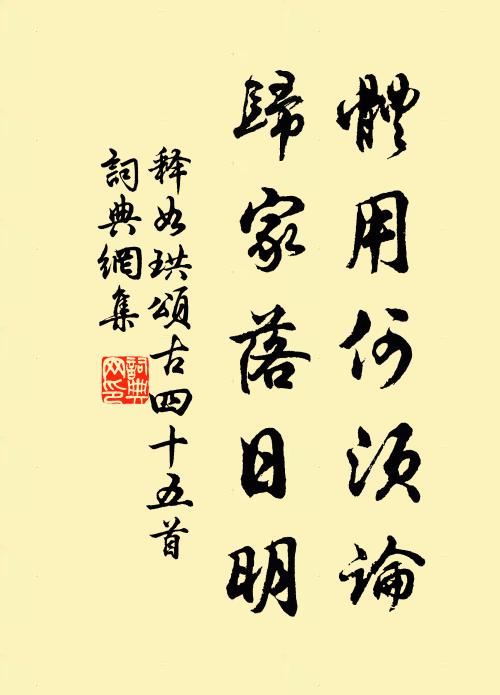 體用何須論
歸家落日明
释如珙頌古四十五首
詞典網集
詞典
网印